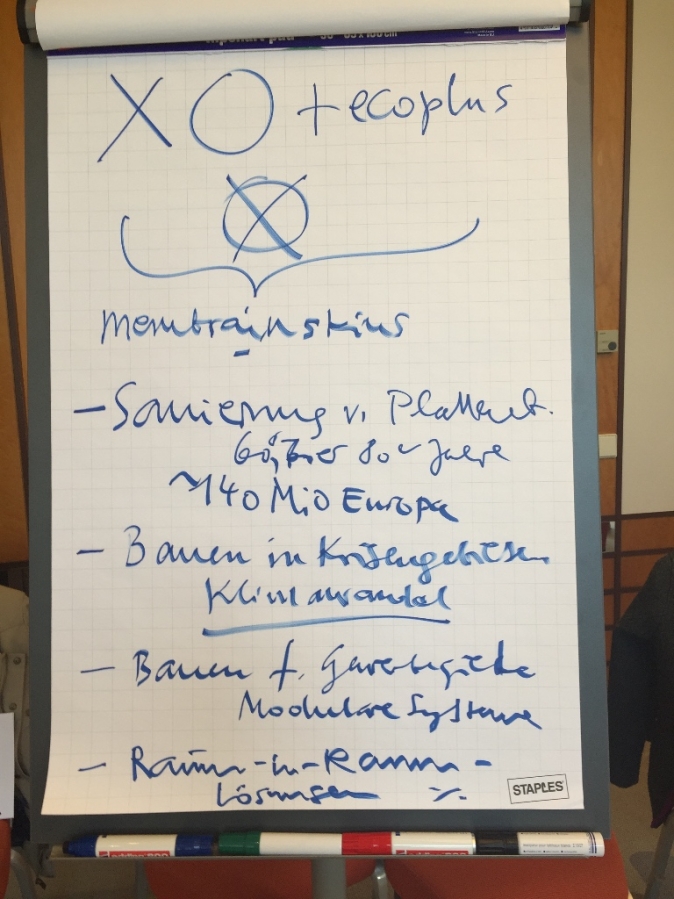 XO + ecoplus
X
membrainskins
– Sanierung v. Plattenb.
60, bis 80er Jahre
~140 Mio Europa
– Bauen in Krisengebieten
Klimawandel
– Bauen f. Gewerbegebiete
Modulare Systeme
– Raum-in-Raum-
Lösungen ./.
STAPLES